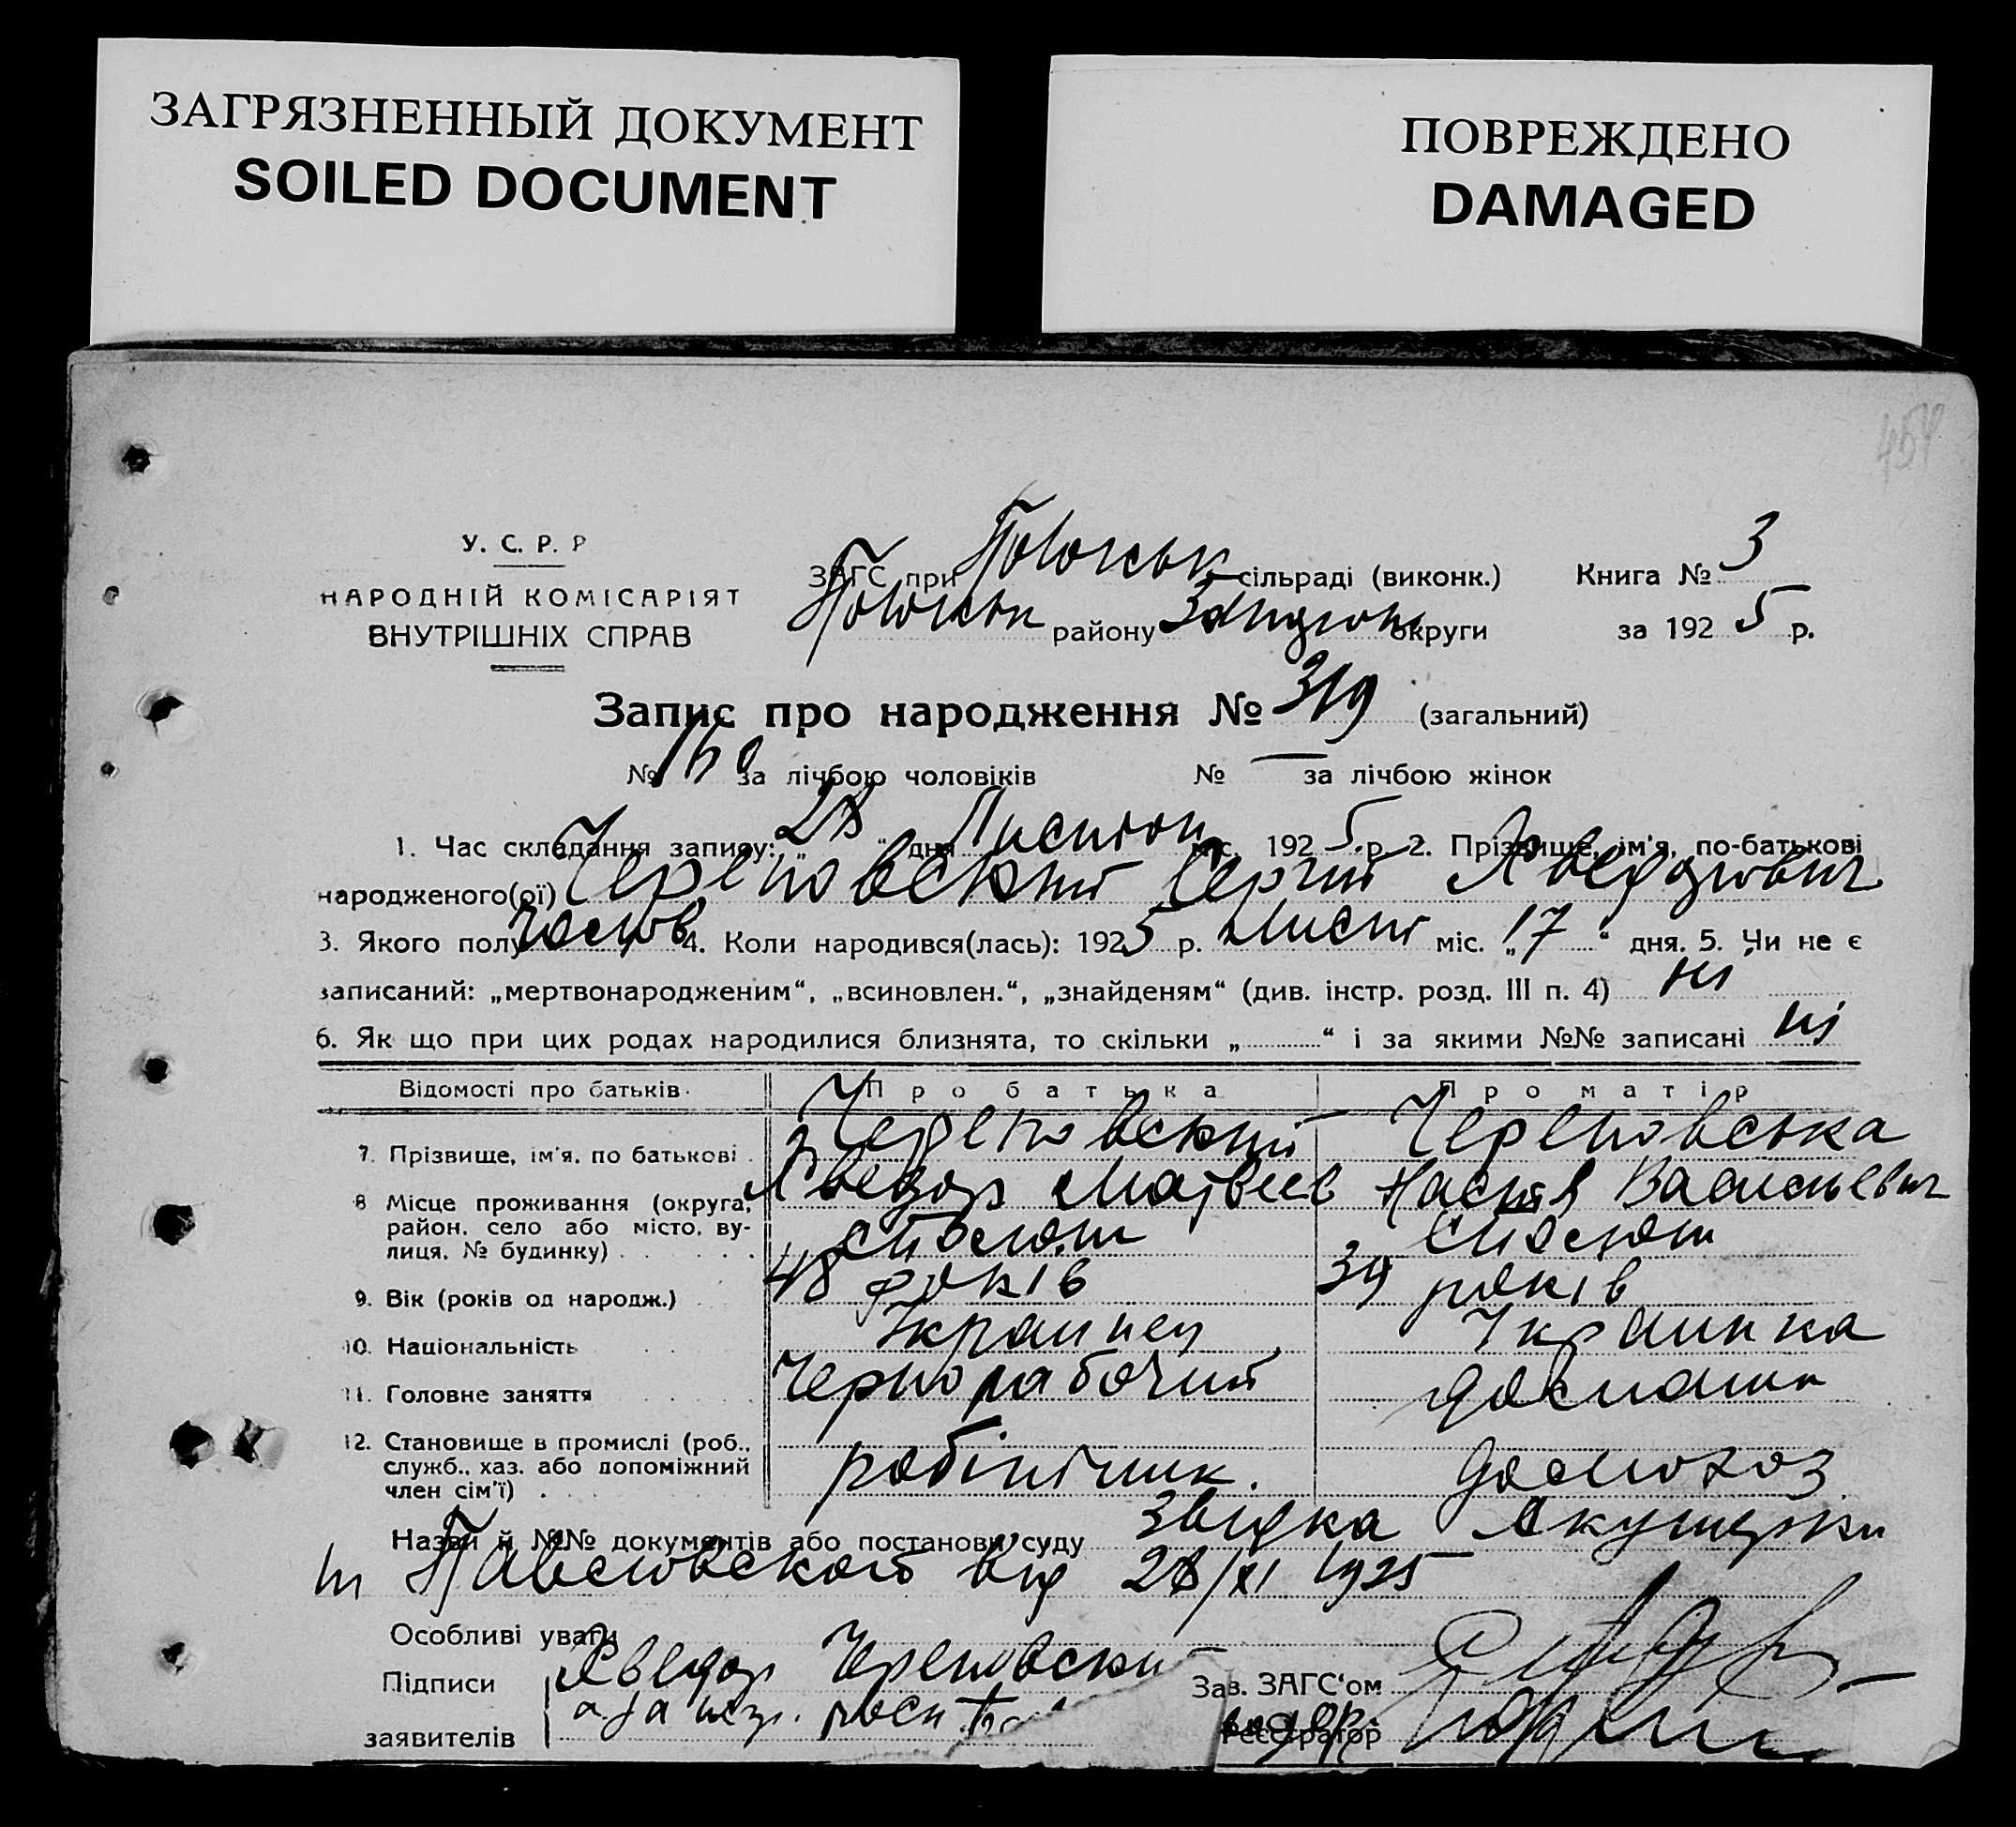 ЗАГРЯЗНЕННЫЙ ДОКУМЕНТ
SOILED DOCUMENT
ПОВРЕЖДЕНО
DAMAGED
У. С. Р. Р
НАРОДНІЙ КОМІСАРІЯТ
ВНУТРІШНІХ СПРАВ
ЗАГС при Пологськ сільраді (виконк.) Книга № 3
Пологськ району округи за 1925 р.
Запис про народження № 319 (загальний)
№ за лічбою чоловіків № — за лічбою жінок
1. Час складання запису: „28“ дня Листоп міс. 1925 р. 2. Прізвище, ім'я, по-батькові
народженого(ої) Череповский Сергій
3. Якого полу 4. Коли народився(лась): 1925 р. Лист міс. „17“ дня. 5. Чи не є
записаний: „мертвонародженим“, „всиновлен.“, „знайденям“ (див. інстр. розд. III п. 4) ні
6. Як що при цих родах народилися близнята, то скільки „ “ і за якими №№ записані ні
Відомості про батьків. Про батька Про матір
7. Прізвище, ім'я, по батькові Череповский Череповська
Матвеев Настя Васильевн
8 Місце проживання (округа, район, село або місто, вулиця, № будинку)
9. Вік (років од народж.) 48 років 39 років
10. Національність Украинец Украинка
11. Головне заняття Чернорабочий домашн
12. Становище в промислі (роб., служб., хаз. або допоміжний член сім'ї) робітник. домохоз
Назви й №№ документів або постанови суду Звідка Акушерки
Павловского від 28/XI 1925
Особливі уваги
Підписи Череповски Зав. ЗАГС'ом
заявителів Реєстратор